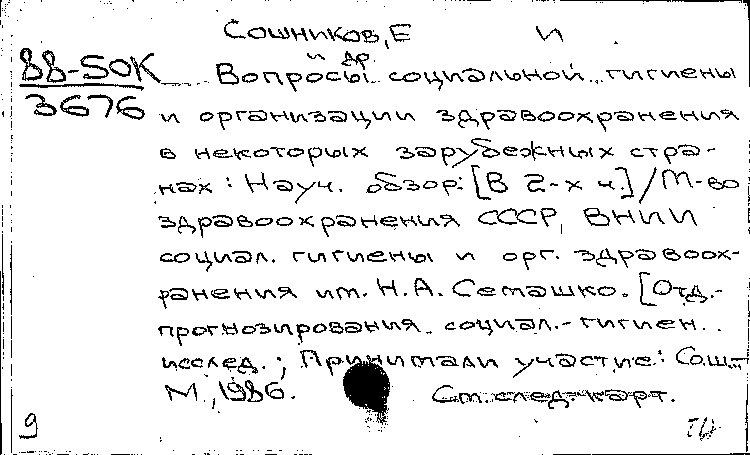 Сошников, Е И
и др.
88-50К
3676
Вопросы социальной гигиены
и организации здравоохранения
в некоторых зарубежных стра-
нах: Науч. обзор: [В 2-х ч.] / М-во
здравоохранения СССР, ВНИИ
социал. гигиены и орг. здравоох-
ранения им. Н.А. Семашко. [Отд.
прогнозирования социал.-гигиен.
исслед.; Принимали участие: Сош...
М., 1986. См. след. карт.
9